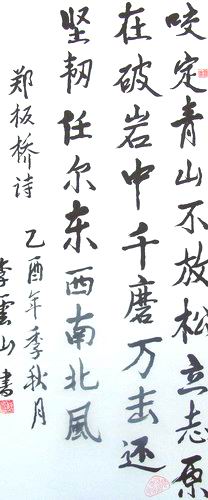 咬定青山不放松立志原
在破岩中千磨万击还
坚韧任尔东西南北風
郑板桥诗
乙酉年季秋月
李雲山書